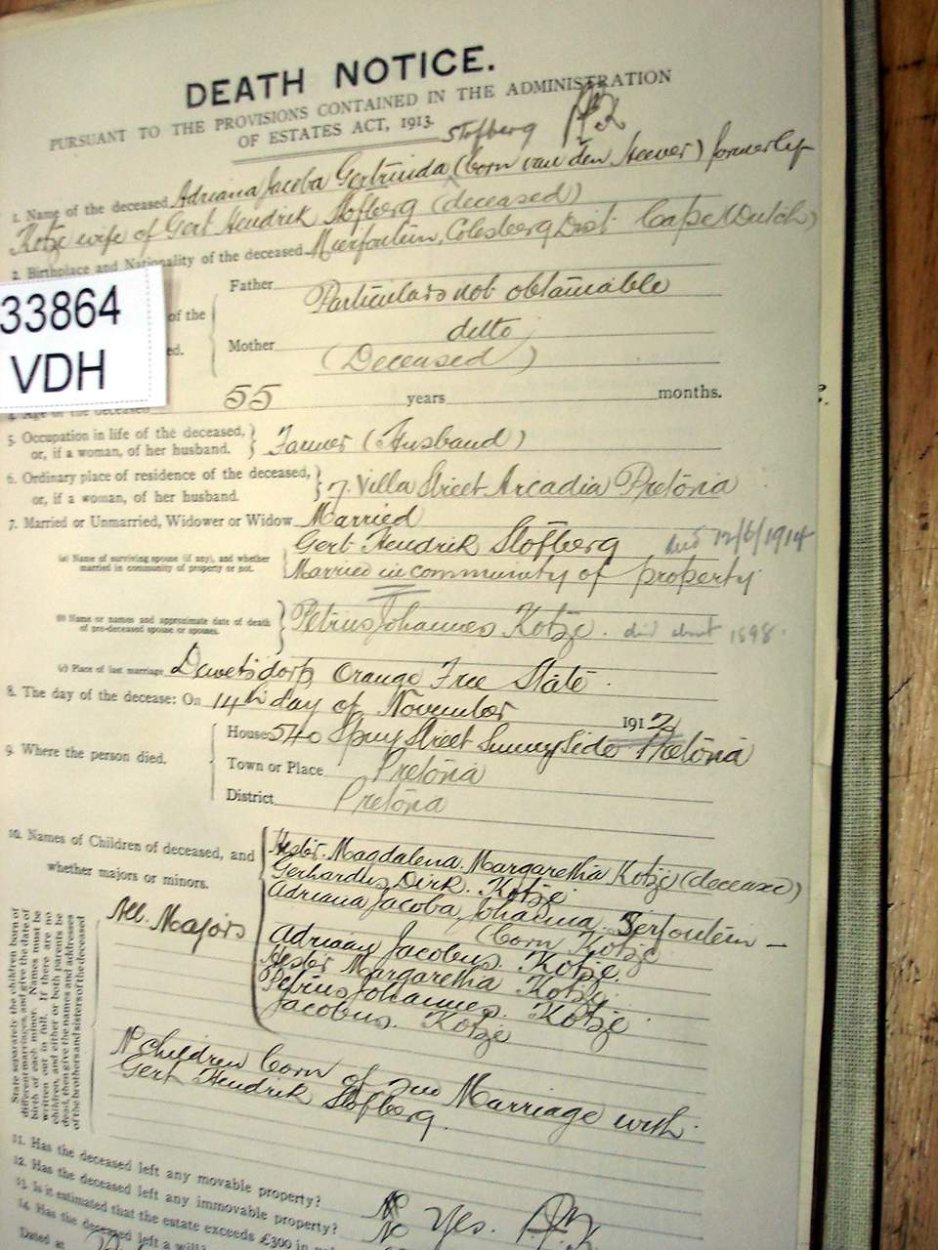 DEATH NOTICE.
PURSUANT TO THE PROVISIONS CONTAINED IN THE ADMINISTRATION
OF ESTATES ACT, 1913.
Stofberg
1. Name of the deceased Adriana Jacoba Gertruida (born van den Heever) formerly
Kotze wife of Gert Hendrik Stofberg (deceased)
2. Birthplace and Nationality of the deceased Colesberg Dist. Cape (Dutch)
33864
VDH
of the
ed.
Father Particulars not obtainable
Mother ditto
(Deceased)
4. Age of the deceased 55 years months.
5. Occupation in life of the deceased, or, if a woman, of her husband. Farmer (Husband)
6. Ordinary place of residence of the deceased, or, if a woman, of her husband. 7. Villa Street Arcadia Pretoria
7. Married or Unmarried, Widower or Widow Married
(a) Name of surviving spouse (if any), and whether married in community of property or not. Gert Hendrik Stofberg died 12/6/1914
Married in community of property
(b) Name or names and approximate date of death of pre-deceased spouse or spouses. Petrus Johannes Kotze. died about 1898.
(c) Place of last marriage Dewetsdorp Orange Free State.
8. The day of the decease: On 14th day of November 191
9. Where the person died.
House 540 Spuy Street Sunnyside Pretoria
Town or Place Pretoria
District Pretoria
10. Names of Children of deceased, and whether majors or minors.
Hester Magdalena Margaretha Kotze (deceased)
Gerhardus Dirk. Kotze
Adriana Jacoba Johanna Serfontein —
(born Kotze
Adriaan Jacobus Kotze
Hester Margaretha Kotze
Petrus Johannes. Kotze
Jacobus. Kotze
All Majors
State separately the children born of different marriages, and give the date of birth of each minor. Names must be written out in full. If there are no children, and either or both parents be dead, then give the names and addresses of the brothers and sisters of the deceased
children born of Marriage with
Gert Hendrik Stofberg.
11. Has the deceased left any movable property?
12. Has the deceased left any immovable property? No
13. Is it estimated that the estate exceeds £300 in No Yes.
14. Has the deceased left a will
Dated at